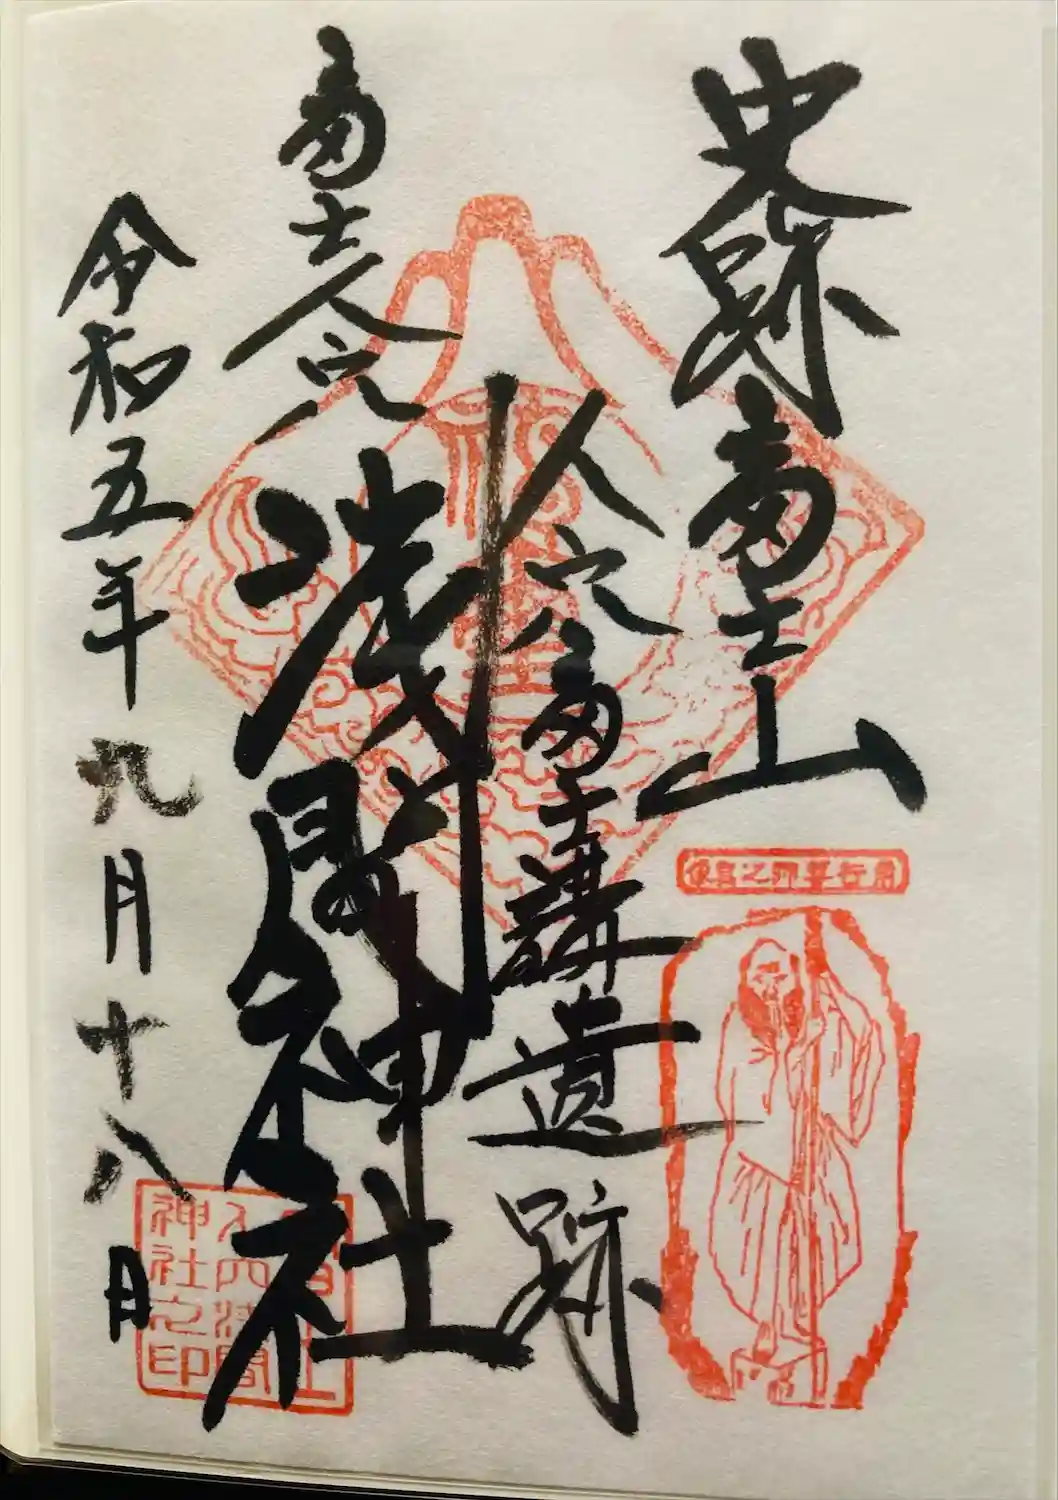 史跡 富士山
人穴富士講遺跡
富士人穴
浅間神社
令和五年九月十八日
神社之印